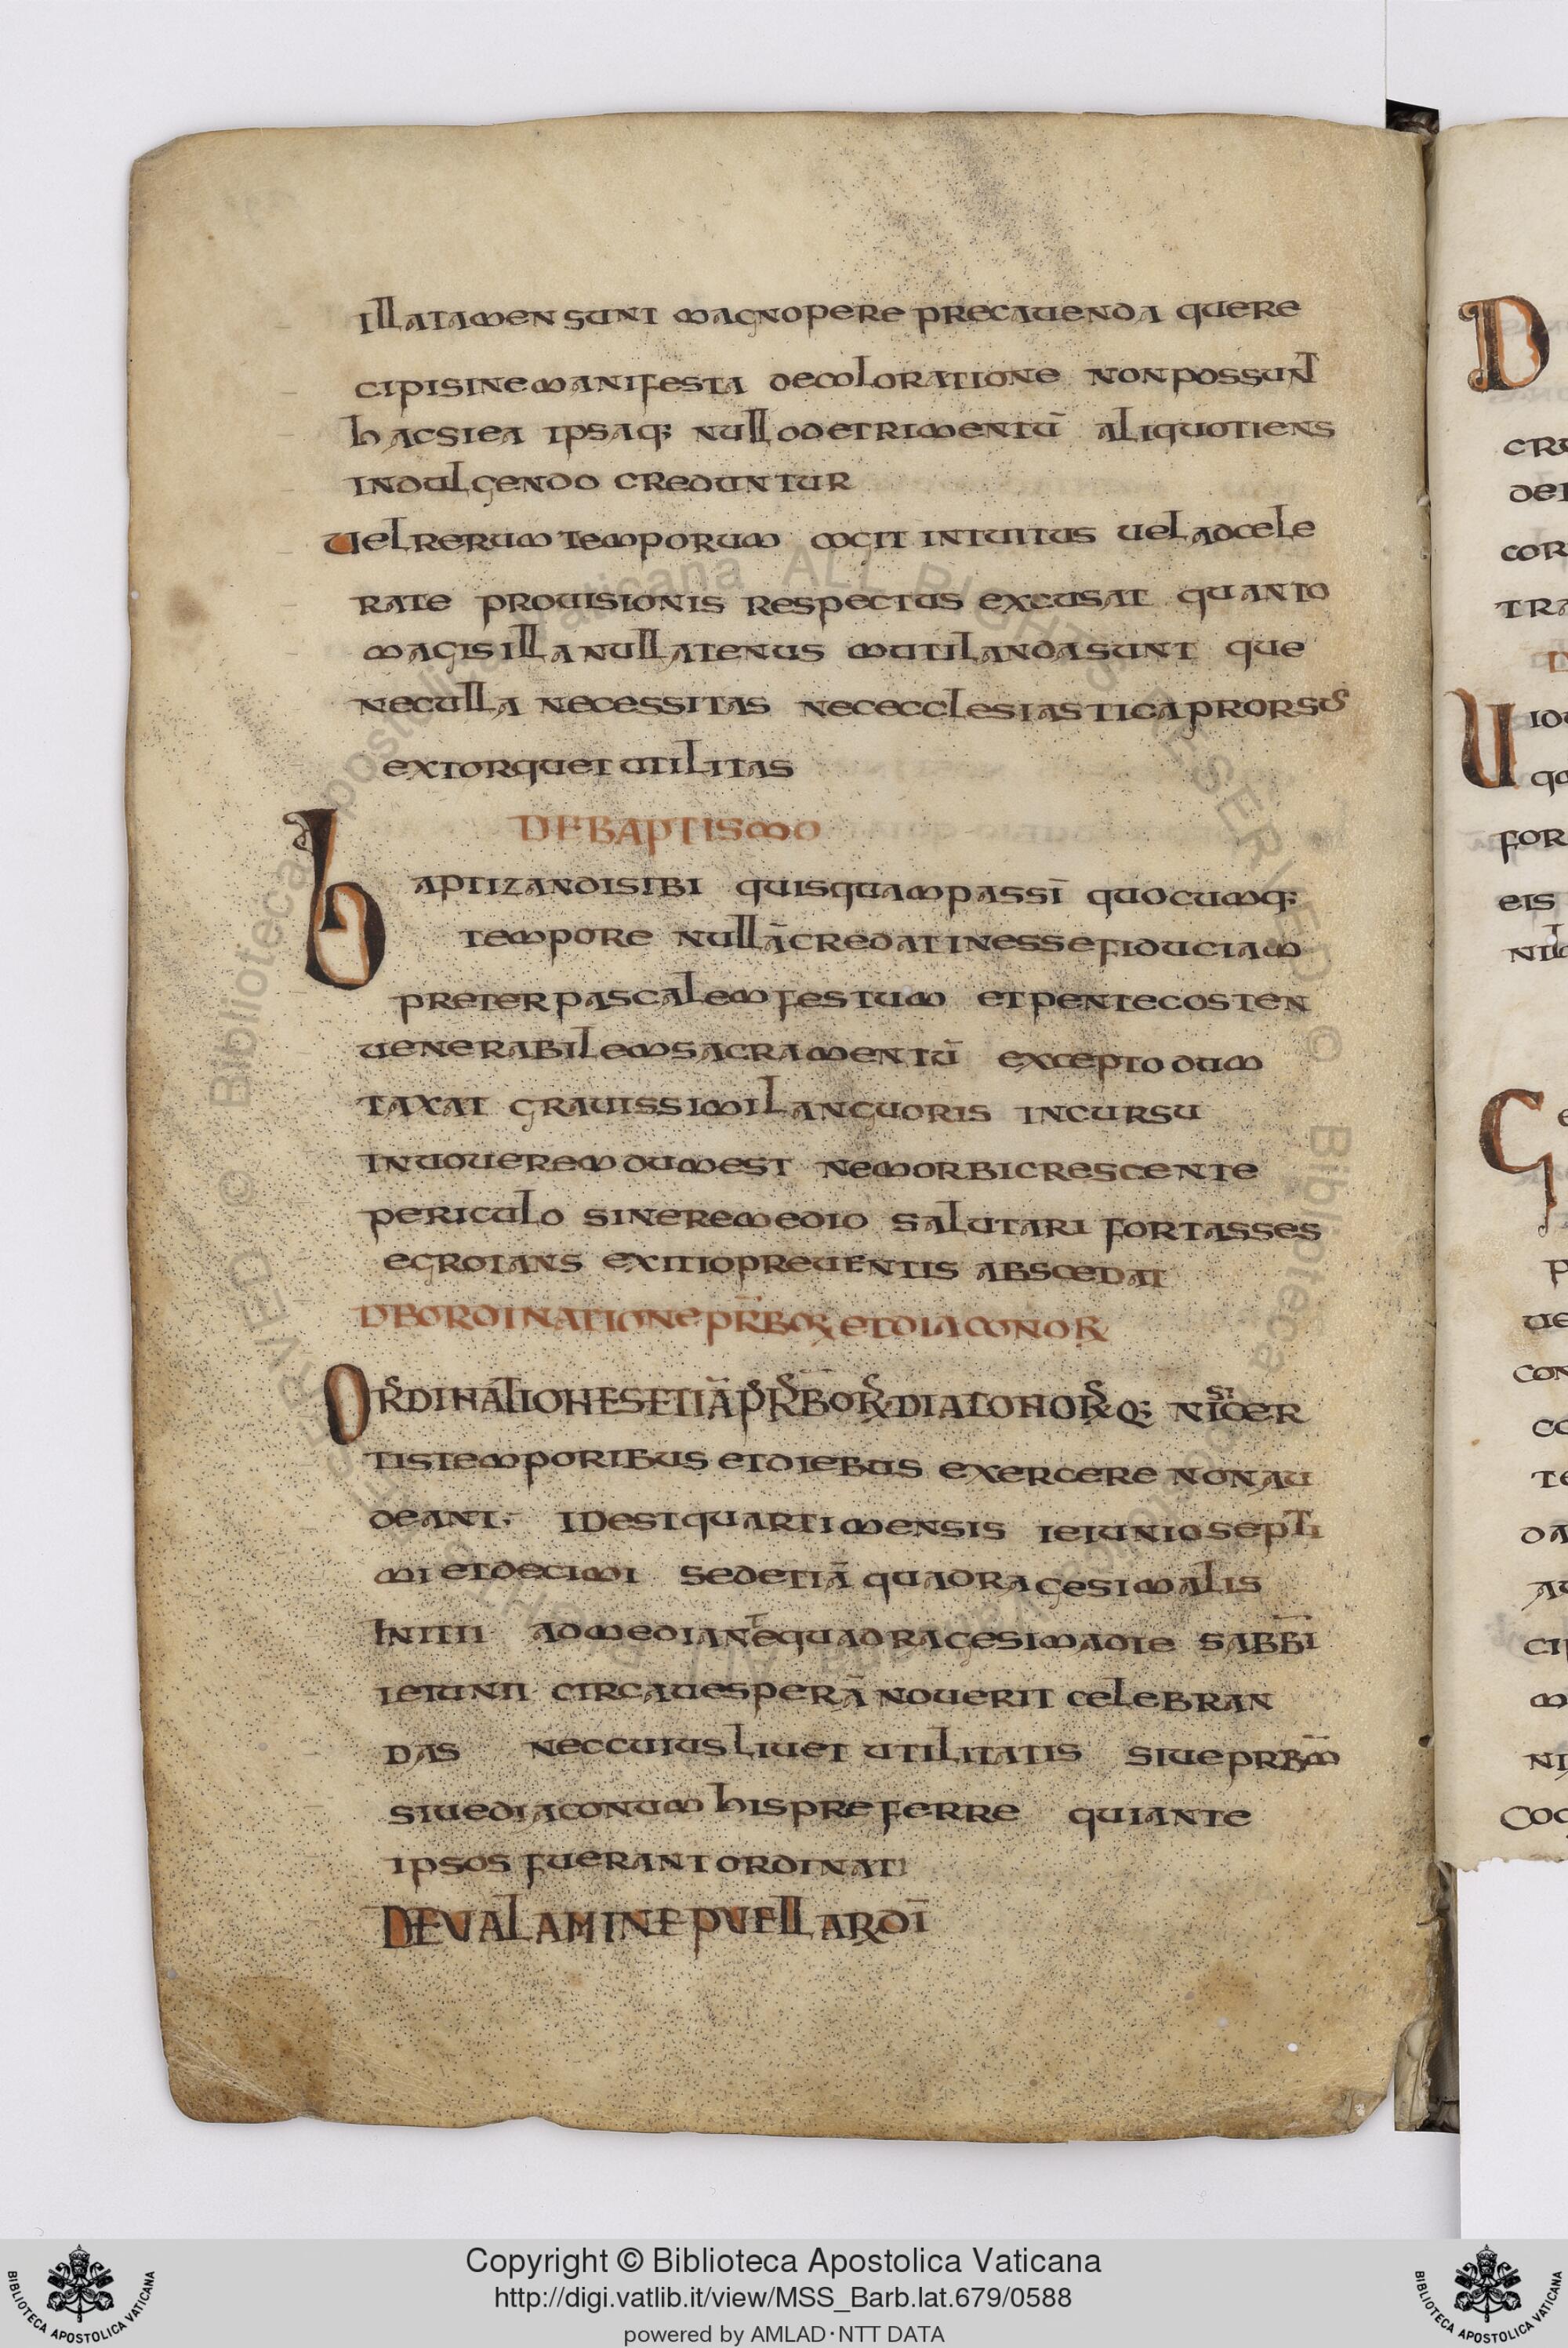 illatamen sunt magnopere precauenda quere
cipisinemanifesta decoloratione nonpossunt
hacsiea ipsaq; nullodetrimentū aliquotiens
indulgendo creduntur
uelrerum temporum cogit intuitus uel adcele
rate prouisionis respectus excusat quanto
magis illa nullatenus mutilandasunt que
neculla necessitas nececclesiasticaprorsus
extorquet utilitas
DEBAPTISMO
baptizandisibi quisquampassī quocumq;
tempore nullācredatinessefiduciam
preterpascalemfestum etpentecosten
uenerabilemsacramentū excepto dum
taxat grauissimilanguoris incursu
inuoueremdumest nemorbicrescente
periculo sineremedio salutari fortasses
egrotans exitiopreuentis abscedat
DEORDINATIONEPR̄BOR ETDIACONOR
ORDINATIONESETIĀPR̄BOR DIACONORQ; NISI CER
tistemporibus etdiebus exercere nonau
deant; idestquartimensis ieiuniosepti
mi etdecimi sedetiā quadragesimalis
Initii admediantequadragesimadie sabb̄i
ieiunii circauesperā nouerit celebran
das neccuiusliuet utilitatis siueprb̄m
siuediaconum hispreferre quiante
ipsos fuerantordinati
DEVALAMINEPVELLARDĪ
D
cre
dei
cor
tra
U
for
eis
C
ue
con
te
da
au
cip
m
Copyright © Biblioteca Apostolica Vaticana
http://digi.vatlib.it/view/MSS_Barb.lat.679/0588
powered by AMLAD·NTT DATA
BIBLIOTECA APOSTOLICA VATICANA
BIBLIOTECA APOSTOLICA VATICANA